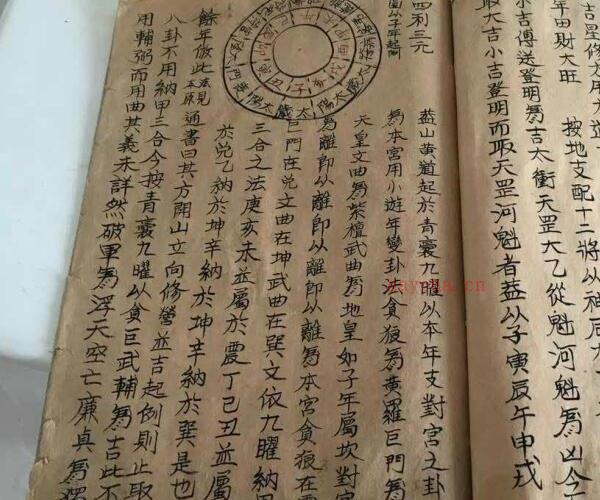 年田財大旺　按地支配十二將以神后大
小吉傳送登明爲吉太衝天罡大乙從魁河魁爲凶今
取大吉小吉登明而取天罡河魁者葢以子寅辰午申戌
四利三元
圖以子年起例
太歲
太陽
子
丑
亥
葢山黄道起於青囊九曜以本年支對宮之卦
爲本宮用小遊年變卦以貪狼爲黄羅巨門爲
天皇文曲爲紫檀武曲爲地皇如子年屬坎對宮
爲離即以離即以離即以離爲本宮貪狼在震
巨門在兌文曲在坤武曲在巽文依九曜納
三合之法庚亥未並屬於震丁己丑並屬
於兌乙納於坤辛納於坤辛納於巽是也
餘年倣此法見本原通書曰其方開山立向修營並吉起例則止取
八卦不用納甲三合今按青囊九曜以貪巨武輔爲吉此不
用輔弼而用曲其義未詳然破軍爲浮天空亡廉貞爲獨